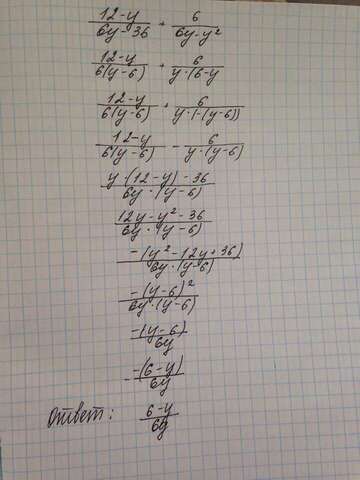 (12-y)/(6y-36) + 6/(6y-y²)
(12-y)/(6(y-6)) + 6/(y·(6-y
(12-y)/(6(y-6)) + 6/(y·(-(y-6))
(12-y)/(6(y-6)) - 6/(y·(y-6)
(y·(12-y)-36)/(6y·(y-6)
(12y-y²-36)/(6y·(y-6)
(-(y²-12y+36))/(6y·(y-6)
(-(y-6)²)/(6y·(y-6)
(-(y-6))/(6y)
-(-(6-y))/(6y)
Ответ: (6-y)/(6y)